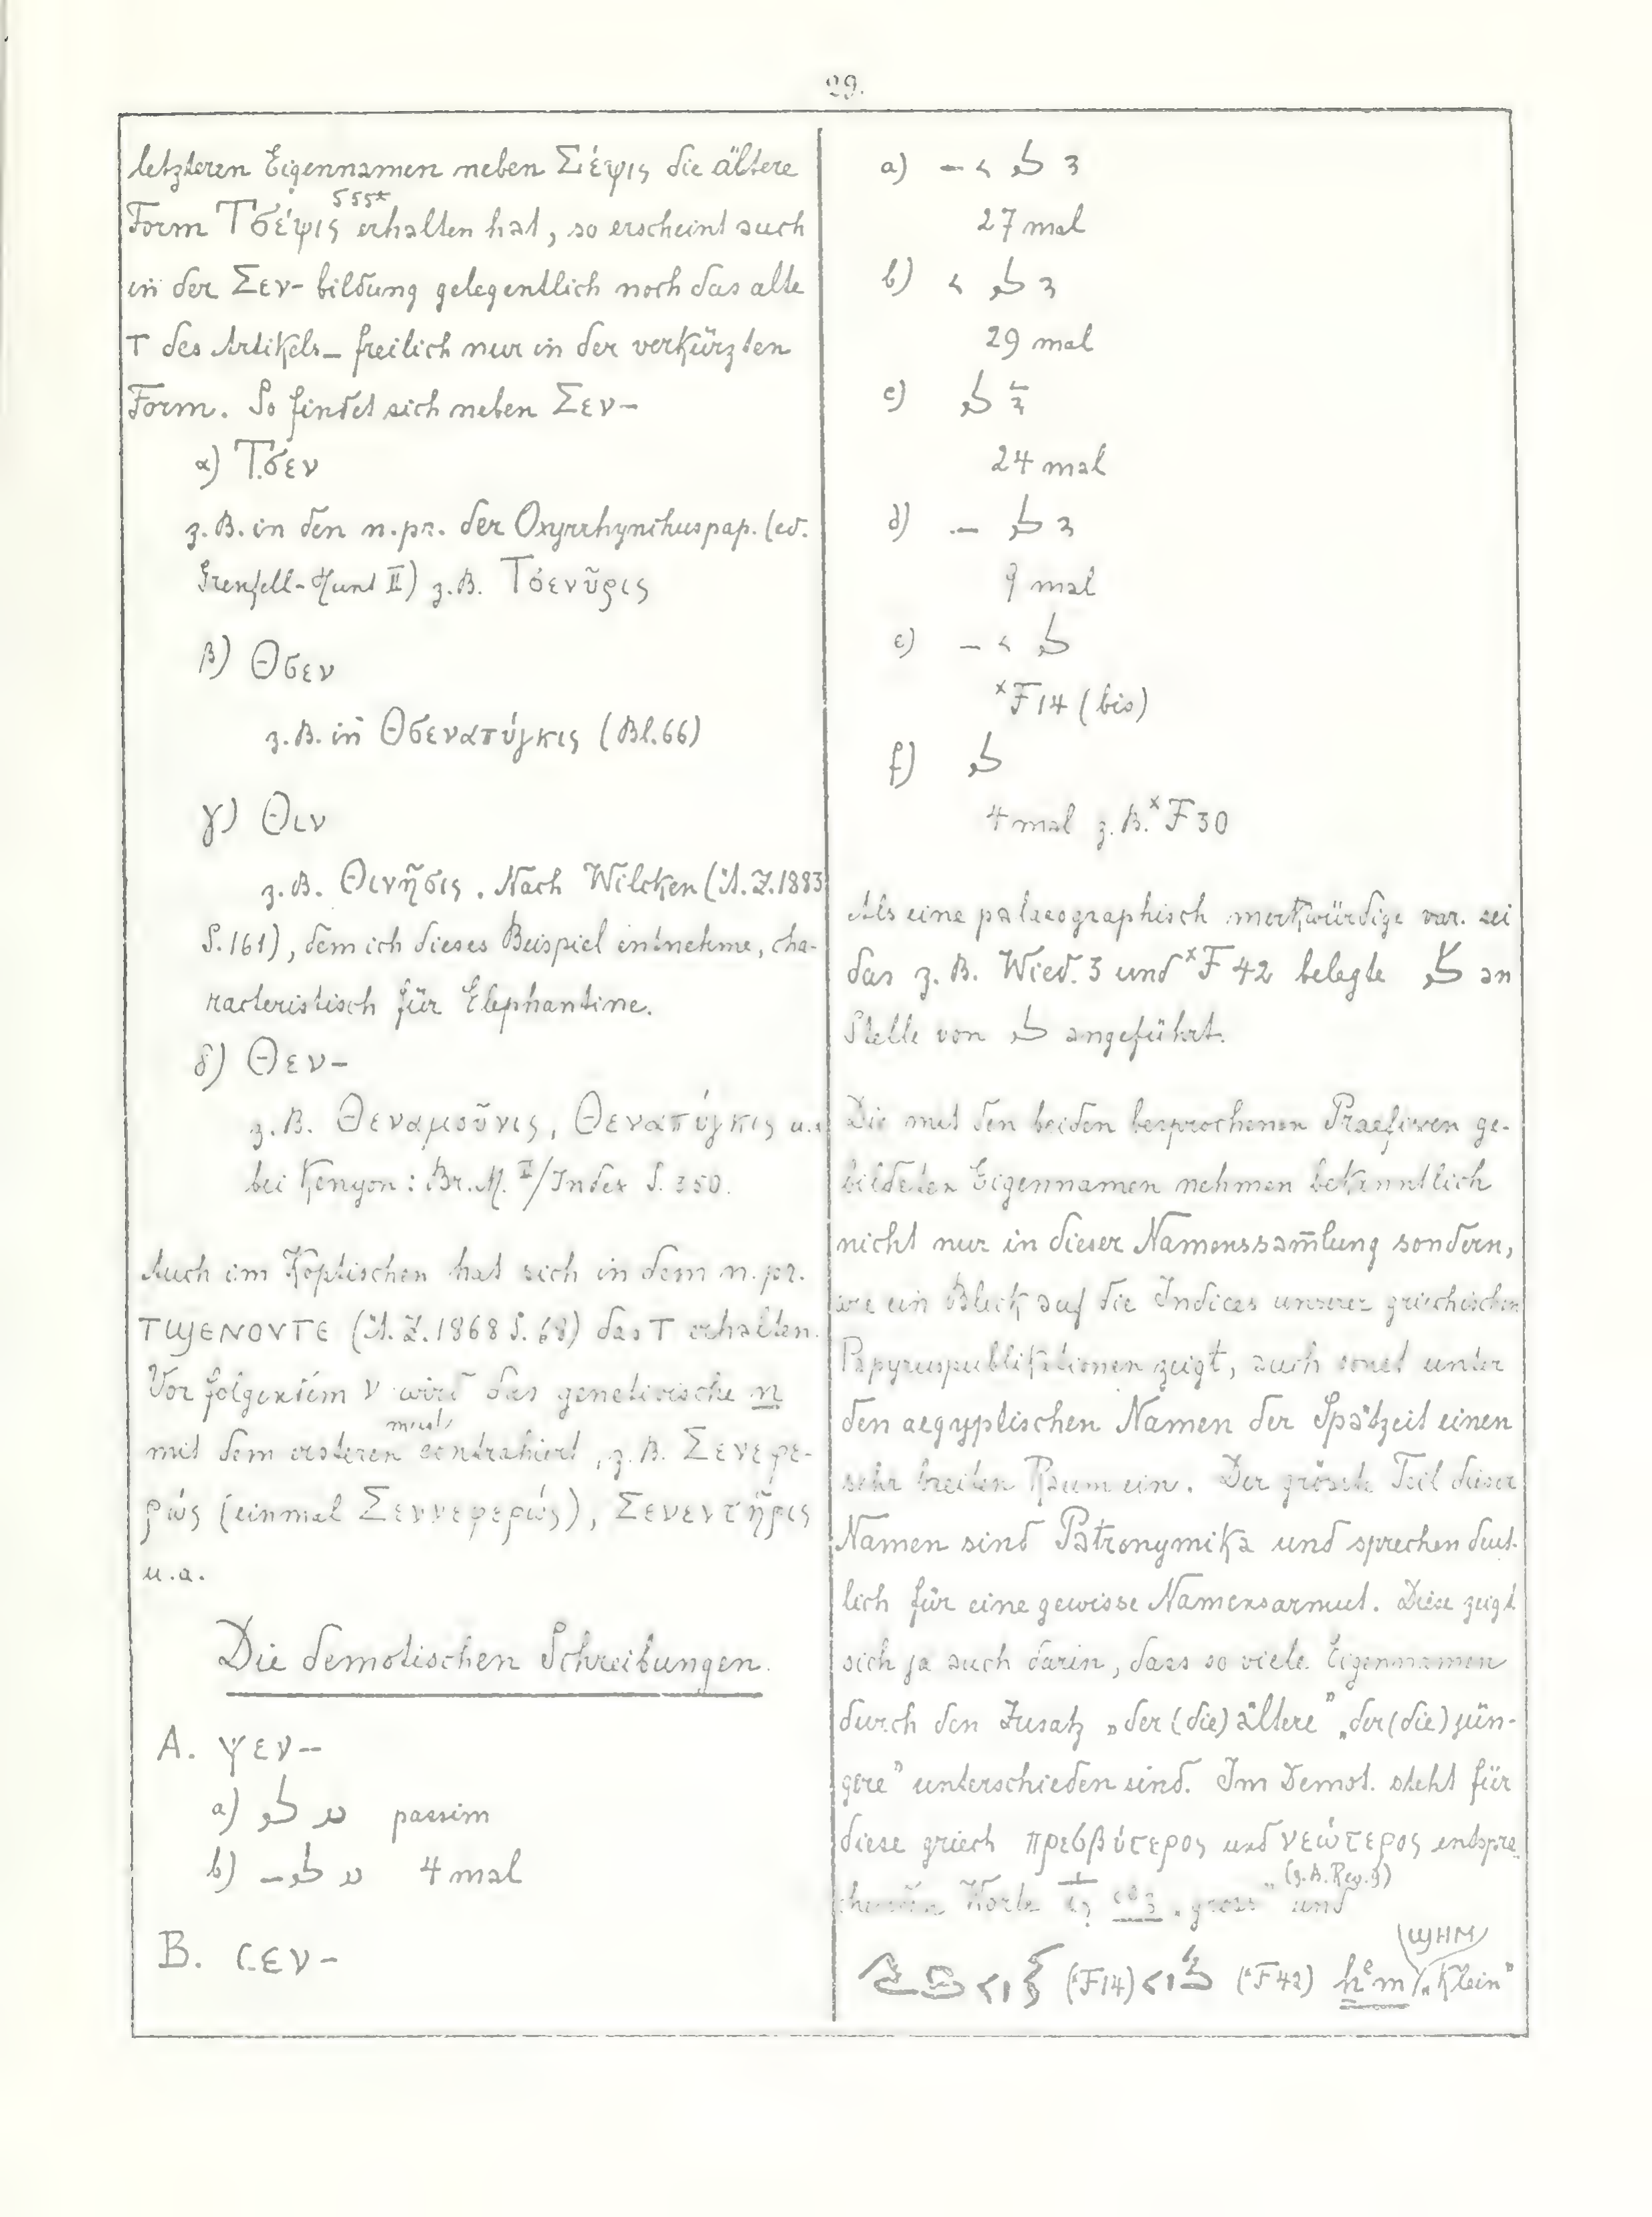 29.
letzteren Eigennamen neben Σέψις die ältere
555*
Form Τσέψις erhalten hat, so erscheint auch
in der Σεν- bildung gelegentlich noch das alte
T des Artikels_ freilich nur in der verkürzten
Form. So findet sich neben Σεν-
α) Τσεν
z.B. in den n.pr. der Oxyrrhynchuspap. (ed.
Grenfell-Hunt II) z.B. Τσενῦρις
β) Θσεν
z.B. in Θσεναπύγκις (Bl.66)
γ) Θιν
z.B. Θινῆσις. Nach Wilcken (Ä.Z.1883
S.161), dem ich dieses Beispiel entnehme, cha-
racteristisch für Elephantine.
δ) Θεν-
z.B. Θεναμοῦνις, Θεναπύγκις u.a
bei Kenyon: Br.M. II/Index S. 350.
Auch im Koptischen hat sich in dem n.pr.
ⲧϣⲉⲛⲟⲩⲧⲉ (Ä.Z.1868 S. 68) das T erhalten.
Vor folgendem ν wird das genetivische n
meist
mit dem ersteren contrahiert, z.B. Σενεφε-
ρώς (einmal Σεννεφερώς), Σενεντῆρις
u.a.
Die demotischen Schreibungen.
A. Ψεν-
a) passim
b) 4 mal
B. Cεν-
a)
27 mal
b)
29 mal
c)
24 mal
d)
9 mal
e)
ˣF14 (bis)
f)
4 mal z.B. ˣF30
Als eine palaeographisch merkwürdige var. sei
das z.B. Wied. 3 und ˣF 42 belegte an
Stelle von angeführt.
Die mit den beiden besprochenen Praefixen ge-
bildeten Eigennamen nehmen bekanntlich
nicht nur in dieser Namenssam̄lung sondern,
wie ein Blick auf die Indices unserer griechischen
Papyruspublikationen zeigt, auch sonst unter
den aegyptischen Namen der Spätzeit einen
sehr breiten Raum ein. Der grösste Teil dieser
Namen sind Patronymika und sprechen deut-
lich für eine gewisse Namensarmut. Diese zeigt
sich ja auch darin, dass so viele Eigennamen
durch den Zusatz „der (die) ältere" „der (die) jün-
gere" unterschieden sind. Im Demot. steht für
diese griech πρεσβύτερος und νεώτερος entspre-
(z.B. Rey. 9)
chenden Worte „gross" und
(ϣⲏⲙ)
(ˣF14) (ˣF42) „klein"